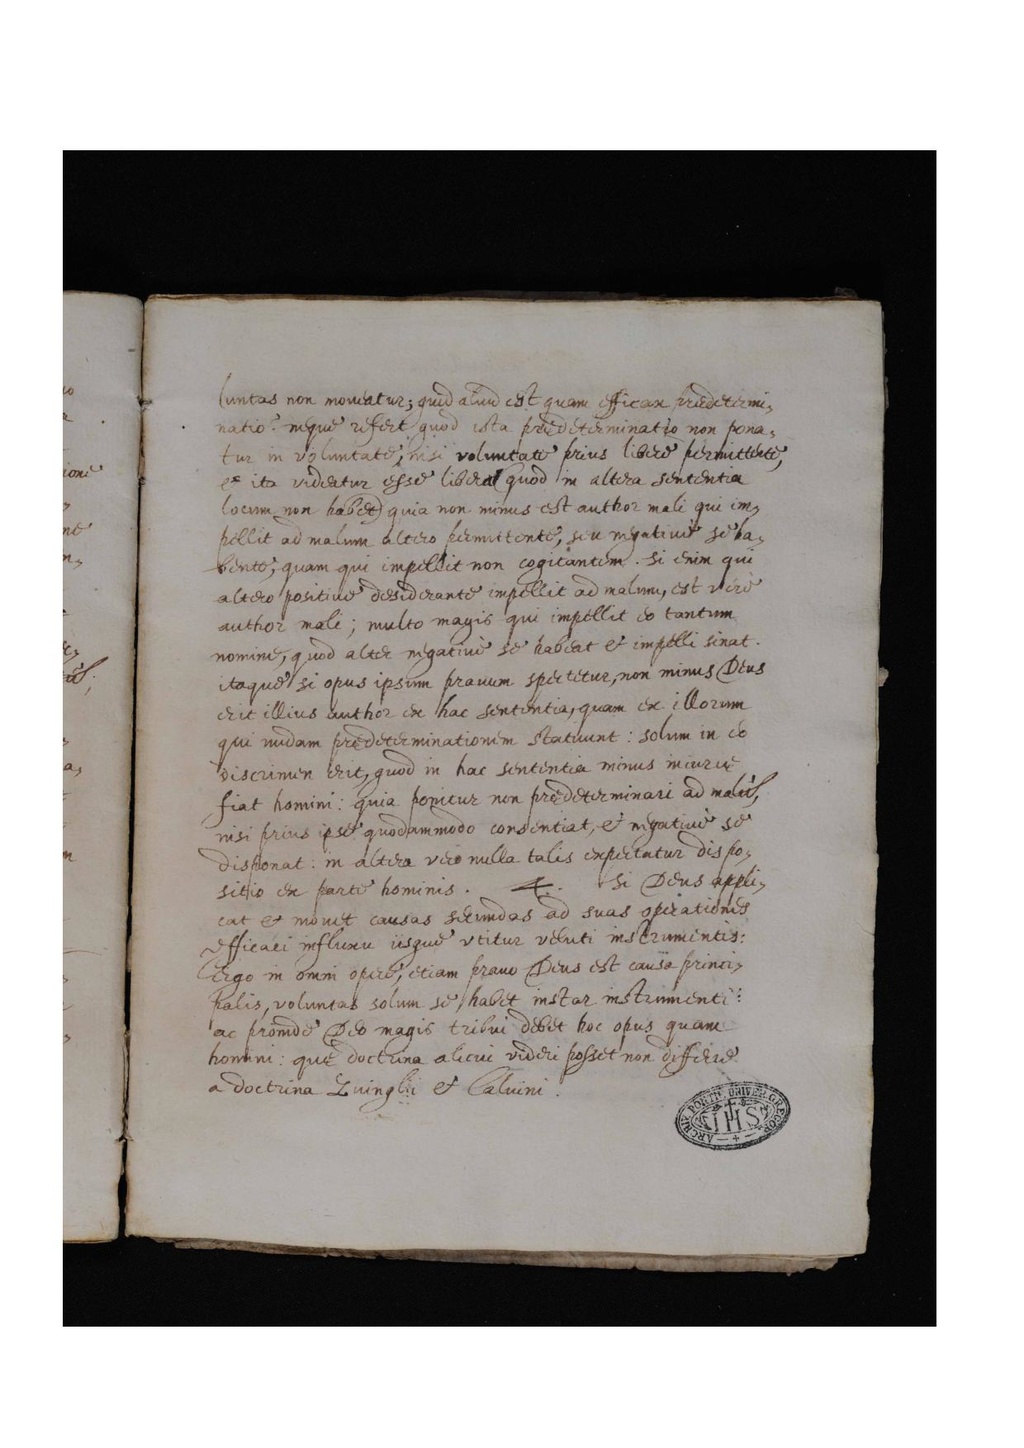 luntas non moveatur; quid aliud est quam efficax prędetermi,
natio? neque refert quod ista prędeterminatio non pona,
tur in voluntate, nisi voluntate prius liberè permittente,
et ita videatur esse libera (quod in altera sententia
locum non habet) quia non minus est author mali qui im,
pellit ad malum altero permittente, seu negativè se ha,
bente, quam qui impellit non cogitantem. si enim qui
altero positivè desiderante impellit ad malum, est verè
author mali; multo magis qui impellit eo tantum
nomine, quod alter negativè se habeat et impelli sinat.
itaque si opus ipsum pravum spectetur, non minus Deus
erit illius author ex hac sententia, quam ex illorum
qui nudam prędeterminationem statuunt: solum in eo
discrimen erit, quod in hac sententia minus iniurię
fiat homini: quia ponitur non prędeterminari ad malũ,
nisi prius ipse quodammodo consentiat, et negativè se
disponat: in altera vero nulla talis expectatur dispo,
sitio ex parte hominis. 4. si Deus appli,
cat et movet causas secundas ad suas operationes
efficaci influxu iisque vtitur veluti instrumentis:
ergo in omni opere, etiam pravo Deus est causa princi,
palis, voluntas solum se habet instar instrumenti:
ac proinde Deo magis tribui debet hoc opus quam
homini: quę doctrina alicui videri posset non differre
a doctrina Zuinglii et Calvini.
ARCHIV. PONTIF. UNIVER. GREGOR.
IHS
ioni